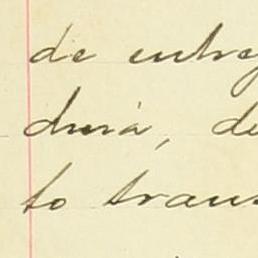 de entreg
duria, de
to trans